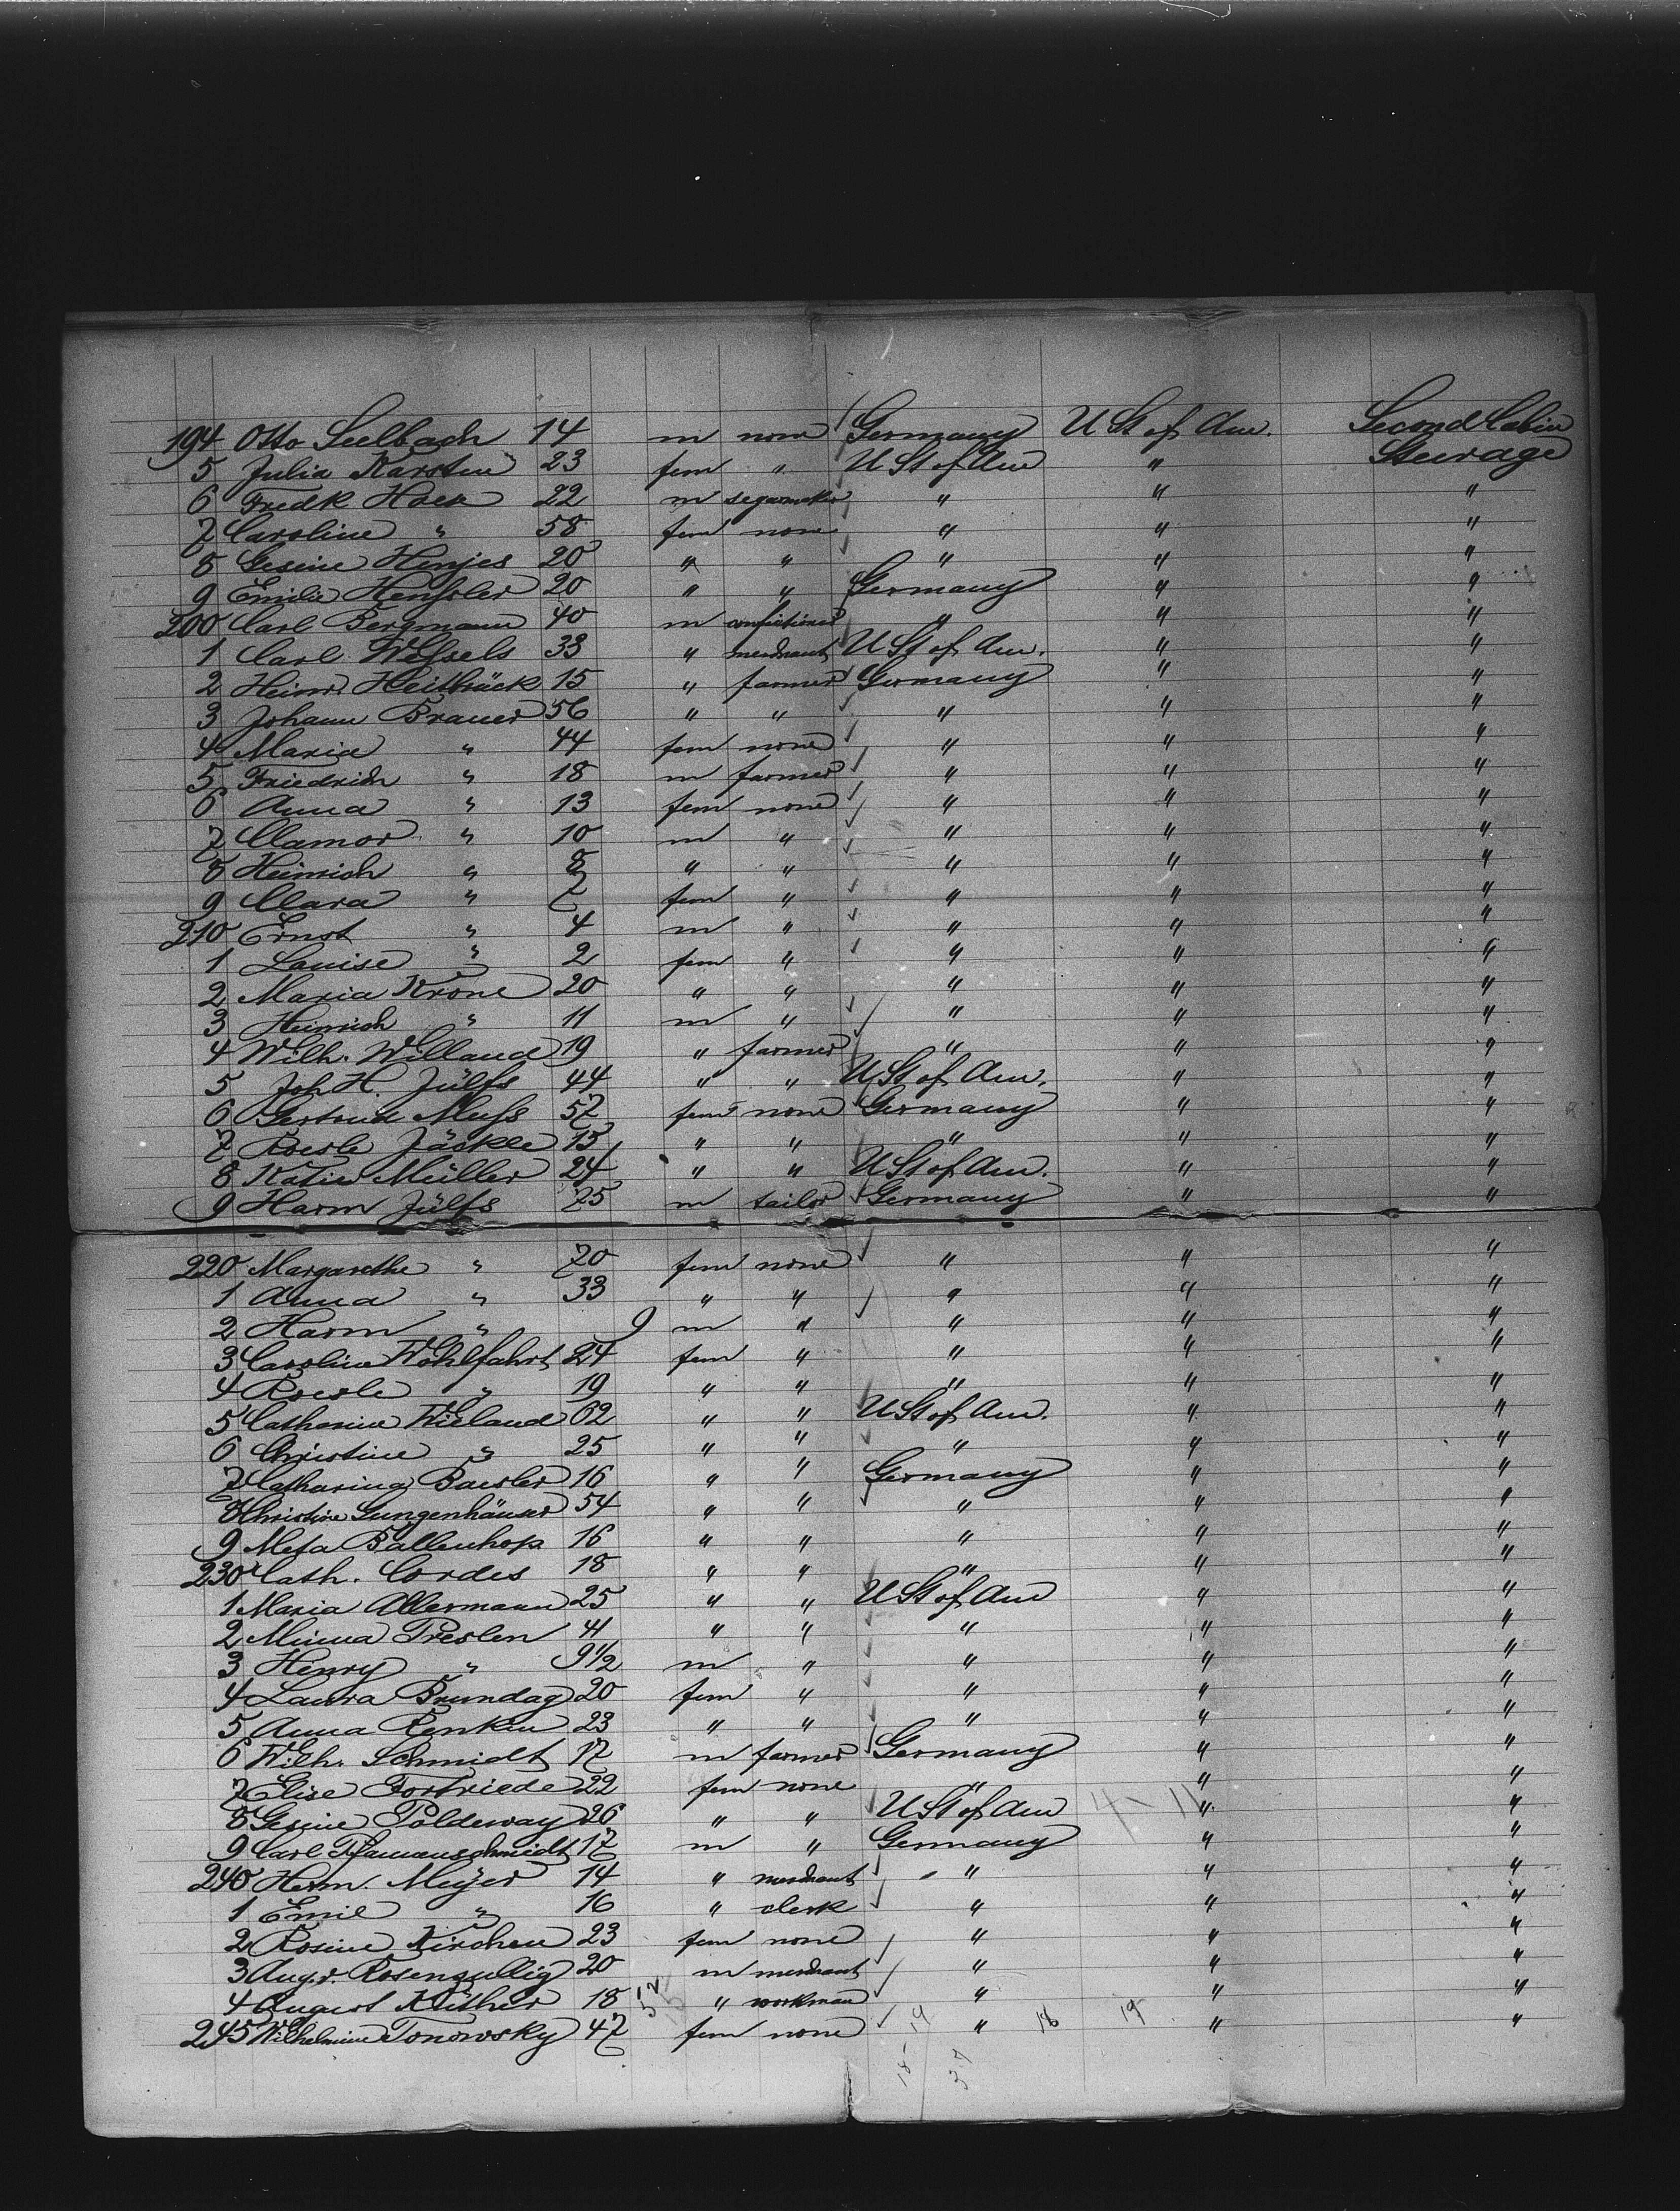 194 Otto Seelbach 14 m none Germany U St of Am. Second Cabin
5 Julia Karsten 23 fem " U St of Am " Steerage
6 Fredk Hoek 22 m segarmaker " " "
7 Caroline " 58 fem none " " "
8 Gesine Henjes 20 " " " " "
9 Emilie Henssler 20 " " Germany " "
200 Carl Bergmann 40 m confectioner " " "
1 Carl Wessels 33 " merchant U St of Am. " "
2 Heinr. Heilbrück 15 " farmer Germany " "
3 Johann Brauer 56 " " " " "
4 Maria " 44 fem none " " "
5 Friedrich " 18 m farmer " " "
6 Anna " 13 fem none " " "
7 Clamor " 10 m " " " "
8 Heinrich " 8 " " " " "
9 Clara " 7 fem " " " "
210 Ernst " 4 m " " " "
1 Louise " 2 fem " " " "
2 Maria Krone 20 " " " " "
3 Heinrich " 11 m " " " "
4 Wilh. Willand 19 " farmer " " "
5 Joh H. Jülfs 44 " " U St of Am. " "
6 Gertrud Muss 57 fem none Germany " "
7 Roesle Jäckle 15 " " " " "
8 Katie Müller 24 " " U St of Am. " "
9 Harm Jülfs 75 m tailor Germany " "
220 Margarethe " 70 fem none " " "
1 Anna " 33 " " " " "
2 Harm " 9 m " " " "
3 Caroline Wohlfahrt 24 fem " " " "
4 Roesle " 19 " " " " "
5 Catharine Wieland 62 " " U St of Am. " "
6 Christine " 25 " " " " "
7 Catharina Baesler 16 " " Germany " "
8 Christine Gungenhäuser 54 " " " " "
9 Meta Ballenhop 16 " " " " "
230 Cath. Cordes 18 " " " " "
1 Maria Allermann 25 " " U St of Am " "
2 Minna Preslen 41 " " " " "
3 Henry " 9 1/2 m " " " "
4 Laura Brundag 20 fem " " " "
5 Anna Renken 23 " " " " "
6 Wilh. Schmidt 17 m farmer Germany " "
7 Elise Fortriede 22 fem none " " "
8 Gesine Poldeway 26 " " U St of Am " "
9 Carl Pfannenschmidt 17 m " Germany " "
240 Herm. Meyer 14 " merchant " " "
1 Emil " 16 " clerk " " "
2 Rosine Kirchen 23 fem none " " "
3 Aug. v. Rosenzullig 20 m merchant " " "
4 August Küther 18 " workman " " "
245 Wilhelmine Tonowsky 47 fem none " 18 19 " "